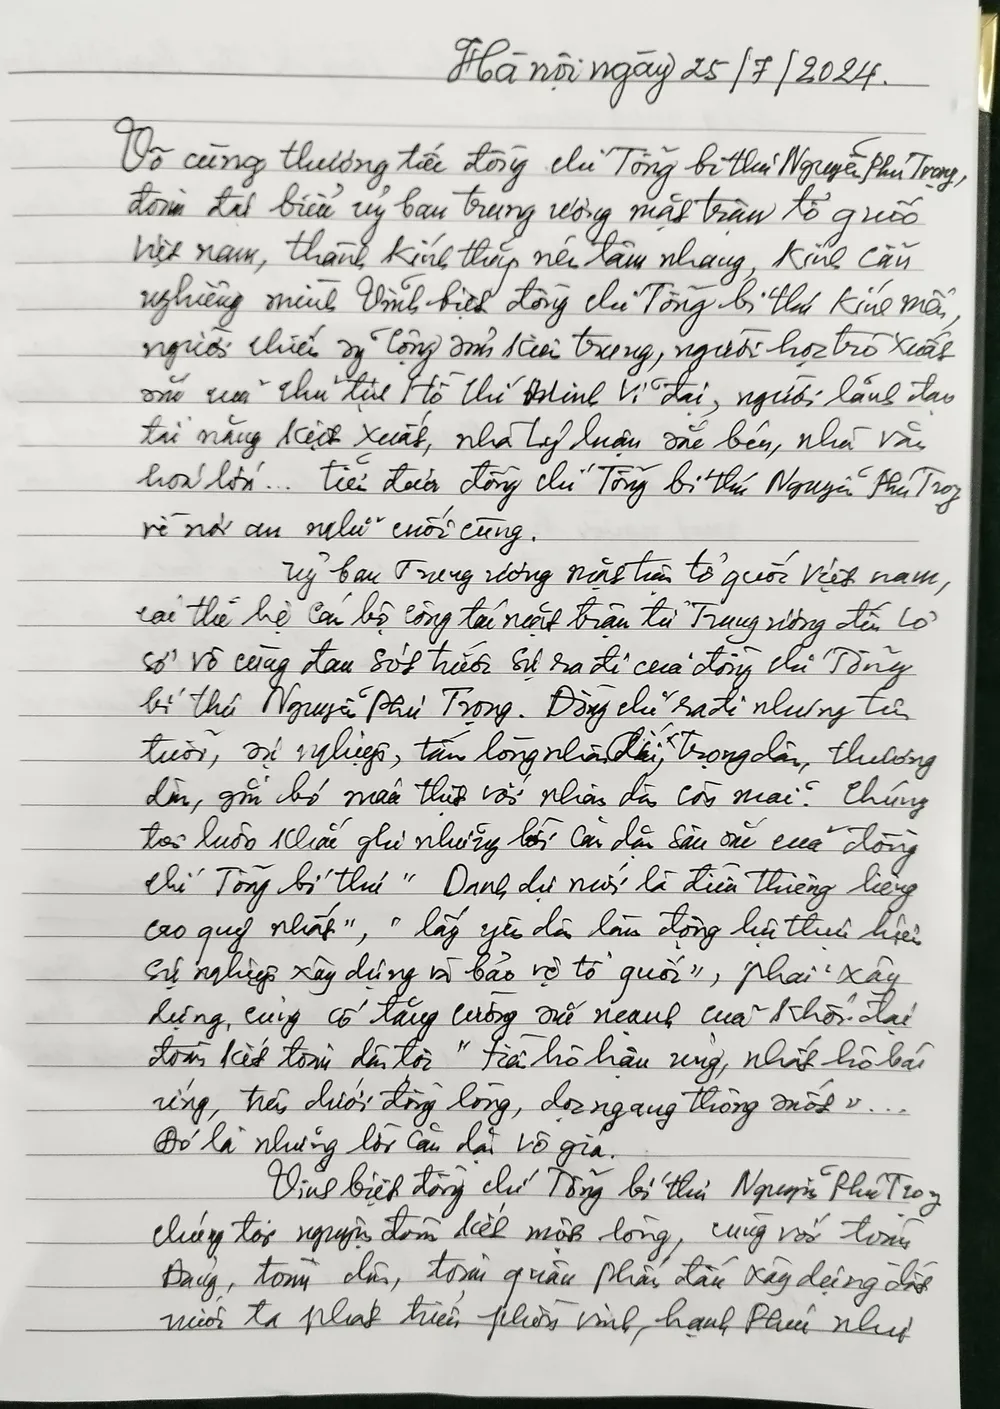 Hà nội ngày 25/7/2024.
Vô cùng thương tiếc đồng chí Tổng bí thư Nguyễn Phú Trọng,
đoàn đại biểu uỷ ban trung ương mặt trận tổ quốc
Việt nam, thành kính thắp nén tâm nhang, kính cẩn
nghiêng mình Vĩnh biệt đồng chí Tổng bí thư kính mến,
người chiến sỹ cộng sản kiên trung, người học trò xuất
sắc của chủ tịch Hồ Chí Minh vĩ đại, người lãnh đạo
tài năng kiệt xuất, nhà lý luận sắc bén, nhà văn
hoá lớn... tiễn đưa đồng chí Tổng bí thư Nguyễn Phú Trọng
về nơi an nghỉ cuối cùng.
Uỷ ban Trung ương mặt trận tổ quốc Việt nam,
các thế hệ cán bộ công tác mặt trận từ Trung ương đến cơ
sở vô cùng đau sót trước sự ra đi của đồng chí Tổng
bí thư Nguyễn Phú Trọng. Đồng chí ra đi nhưng tên
tuổi, sự nghiệp, tấm lòng nhân ái, trọng dân, thương
dân, gắn bó máu thịt với nhân dân còn mãi. Chúng
tôi luôn khắc ghi những lời căn dặn sâu sắc của đồng
chí Tổng bí thư " Danh dự mới là điều thiêng liêng
cao quý nhất", " lấy yên dân làm động lực thực hiện
sự nghiệp xây dựng và bảo vệ tổ quốc", phải xây
dựng, củng cố tăng cường sức mạnh của khối đại
đoàn kết toàn dân tộc " tiền hô hậu ủng, nhất hô bá
ứng, trên dưới đồng lòng, dọc ngang thông suốt "...
Đó là những lời căn dặn vô giá.
Vĩnh biệt đồng chí Tổng bí thư Nguyễn Phú Trọng
chúng tôi nguyện đoàn kết một lòng, cùng với toàn
Đảng, toàn dân, toàn quân phấn đấu xây dựng đất
nước ta phát triển phồn vinh, hạnh phúc như